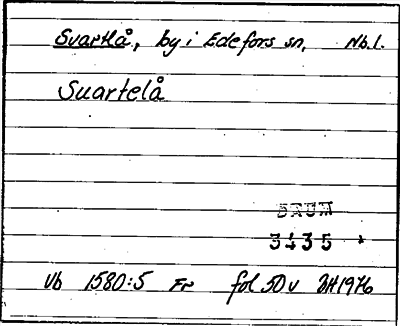 Svartlå, by i Edefors sn, Nb.l.
Suartelå
DAUM
3435
Vb 1580:5 Fr fol 50 v BH1976